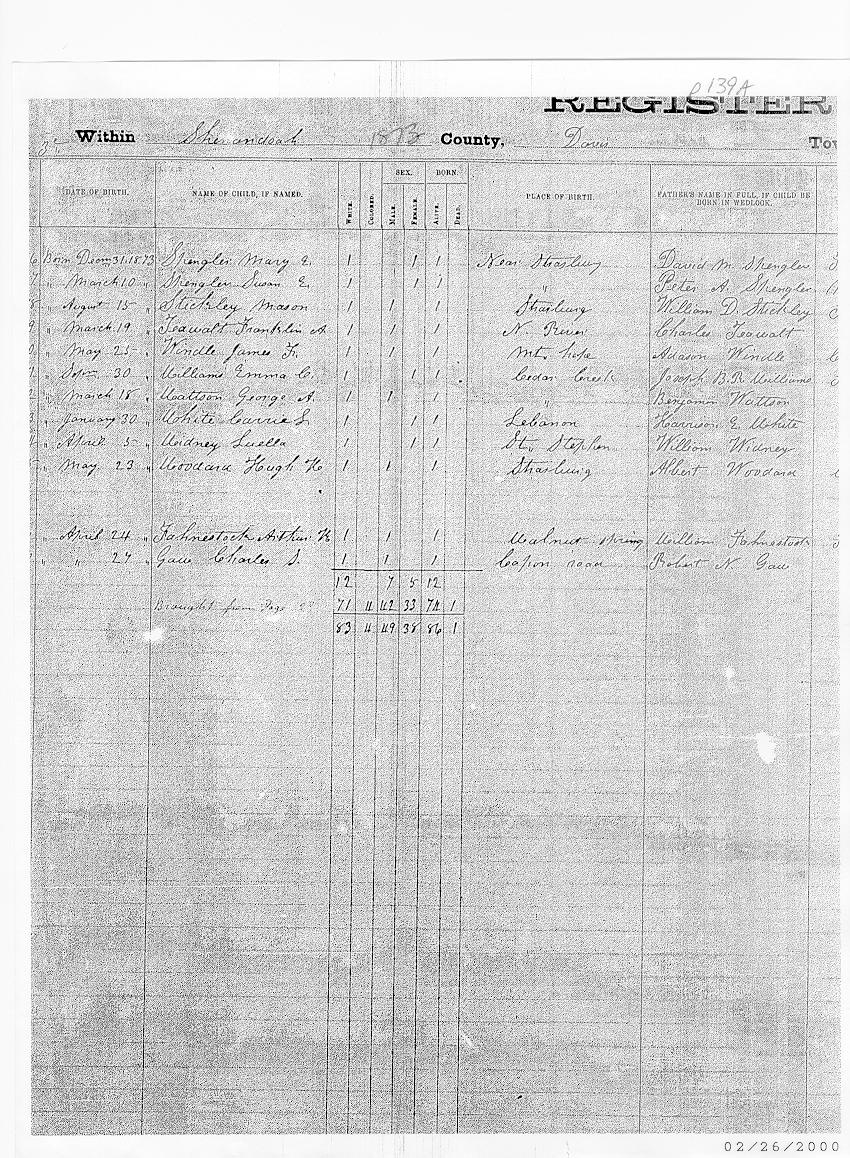 p 139A
REGISTER
Within Shenandoah 1873 County, Davis
SEX. BORN.
DATE OF BIRTH. NAME OF CHILD, IF NAMED. WHITE. COLORED. MALE. FEMALE. ALIVE. DEAD. PLACE OF BIRTH. FATHER'S NAME IN FULL, IF CHILD BE BORN IN WEDLOCK.
6 Born Decm 31, 1873 Spengler Mary E. 1 1 1 Near Strasburg David M. Spengler
7 " March 10 " Spengler Susan E. 1 1 1 " Peter A. Spengler
8 " August 15 " Stickley Mason 1 1 1 Strasburg William D. Stickley
9 " March 19 " Teawalt Franklin A 1 1 1 N. River Charles Teawalt
0 " May 25 " Windle James F. 1 1 1 Mt, hope Adason Windle
1 " Septr 30 " Williams Emma C. 1 1 1 Cedar Creek Joseph B. R. Williams
2 " March 18 " Wattson George A. 1 1 1 " Benjamin Wattson
3 " January 30 " White Carrie S. 1 1 1 Lebanon Harrison E. White
4 " April 5 " Widney Luella 1 1 1 St, Stephen William Widney
5 " May 23 " Woodard Hugh H 1 1 1 Strasburg Albert Woodard
" April 24 " Fahnestock Arthur H 1 1 1 Walnut Spring William Fahnestock
" " 27 " Gaw Charles S. 1 1 1 Capon road Robert N. Gaw
12 7 5 12
Brought from Page 71 4 42 33 74 1
83 4 49 38 86 1
02/26/2000